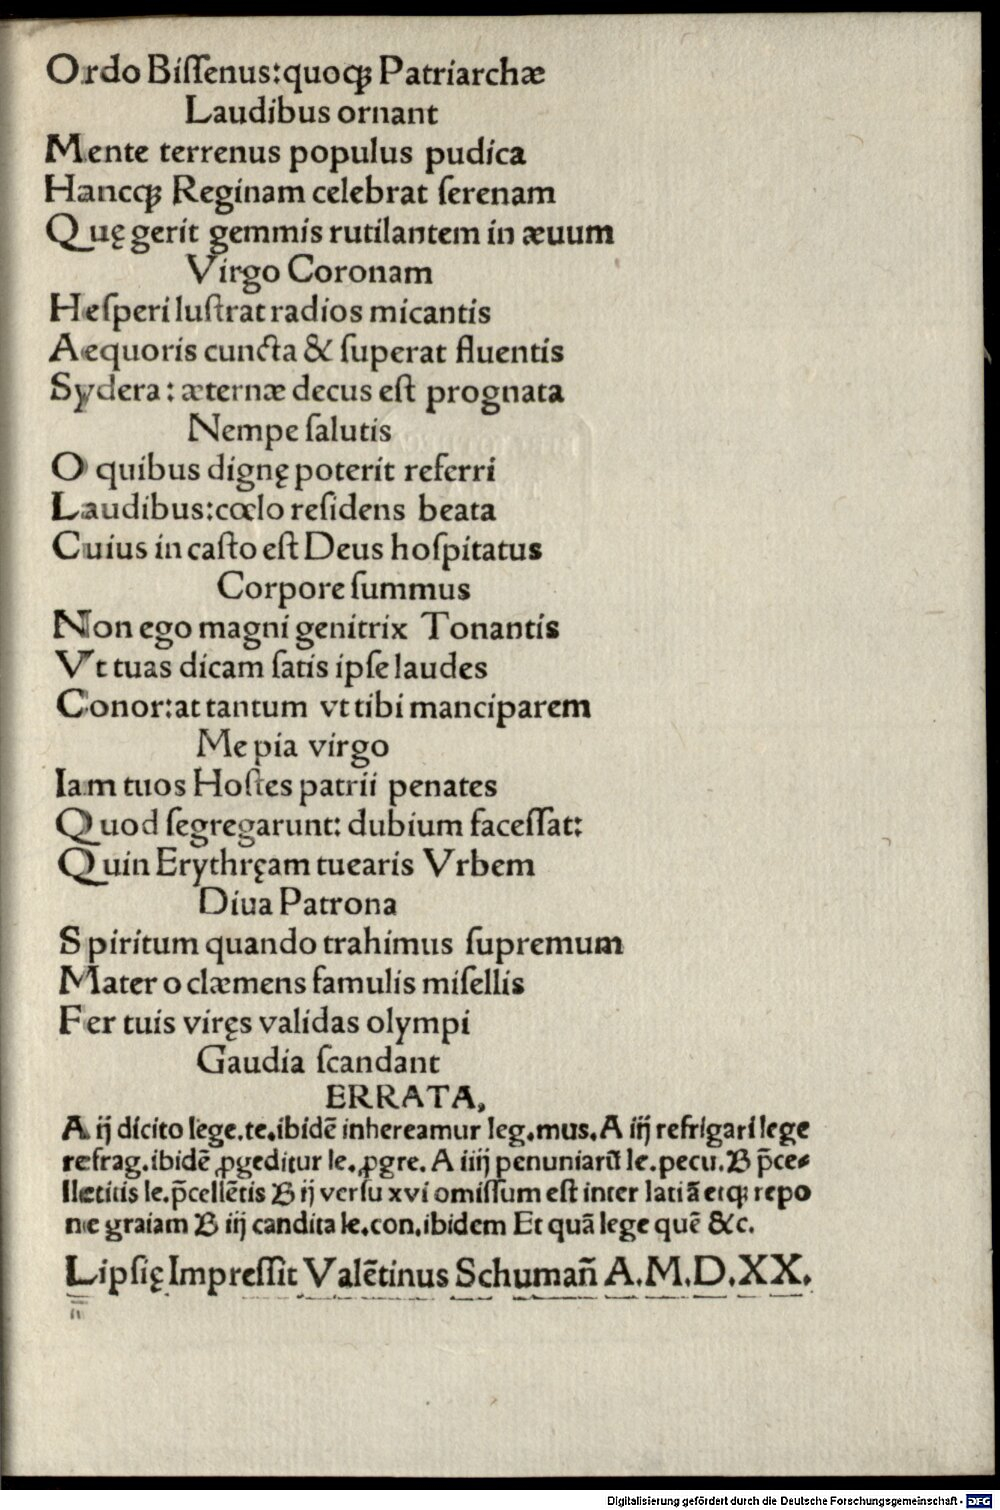 Ordo Biſſenus:quoqꝫ Patriarchæ
Laudibus ornant
Mente terrenus populus pudica
Hancqꝫ Reginam celebrat ſerenam
Quę gerit gemmis rutilantem in æuum
Virgo Coronam
Heſperi luſtrat radios micantis
Aequoris cuncta & ſuperat fluentis
Sydera: æternæ decus eſt prognata
Nempe ſalutis
O quibus dignę poterit referri
Laudibus:cœlo reſidens beata
Cuius in caſto eſt Deus hoſpitatus
Corpore ſummus
Non ego magni genitrix Tonantis
Vt tuas dicam ſatis ipſe laudes
Conor:at tantum vt tibi manciparem
Me pia virgo
Iam tuos Hoſtes patrii penates
Quod ſegregarunt: dubium faceſſat:
Quin Erythręam tuearis Vrbem
Diua Patrona
Spiritum quando trahimus ſupremum
Mater o clæmens famulis miſellis
Fer tuis viręs validas olympi
Gaudia ſcandant
ERRATA,
A ij dicito lege.te.ibidē inhereamur leg.mus.A iij refrigari lege
refrag.ibidē ꝓgeditur le.ꝓgre. A iiij penuniarū le.pecu.B p̄ce-
lletitis le.p̄cellētis B ij verſu xvi omiſſum eſt inter latiā etqꝫ repo
ne graiam B iij candita le.con.ibidem Et quā lege quē &c.
Lipſię Impreſſit Valētinus Schumañ A.M.D.XX.
Digitalisierung gefördert durch die Deutsche Forschungsgemeinschaft - DFG